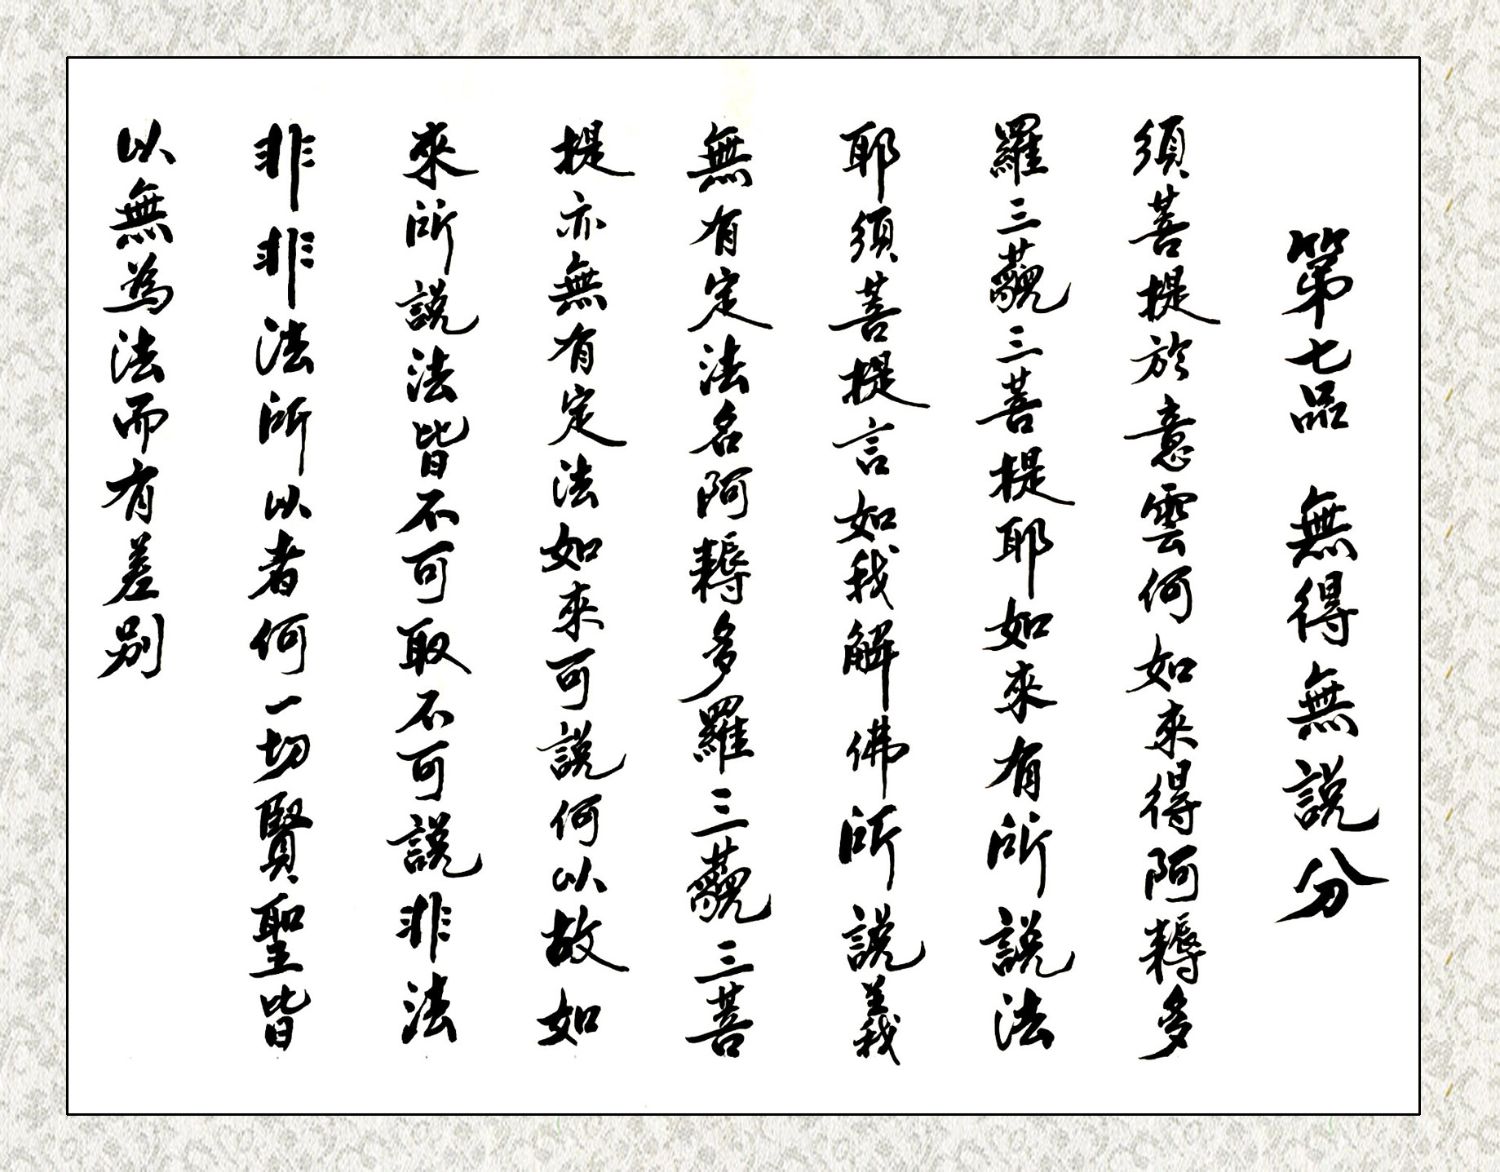 第七品 無得無說分
須菩提於意雲何如來得阿耨多
羅三藐三菩提耶如來有所說法
耶須菩提言如我解佛所說義
無有定法名阿耨多羅三藐三菩
提亦無有定法如來可說何以故如
來所說法皆不可取不可說非法
非非法所以者何一切賢聖皆
以無為法而有差别